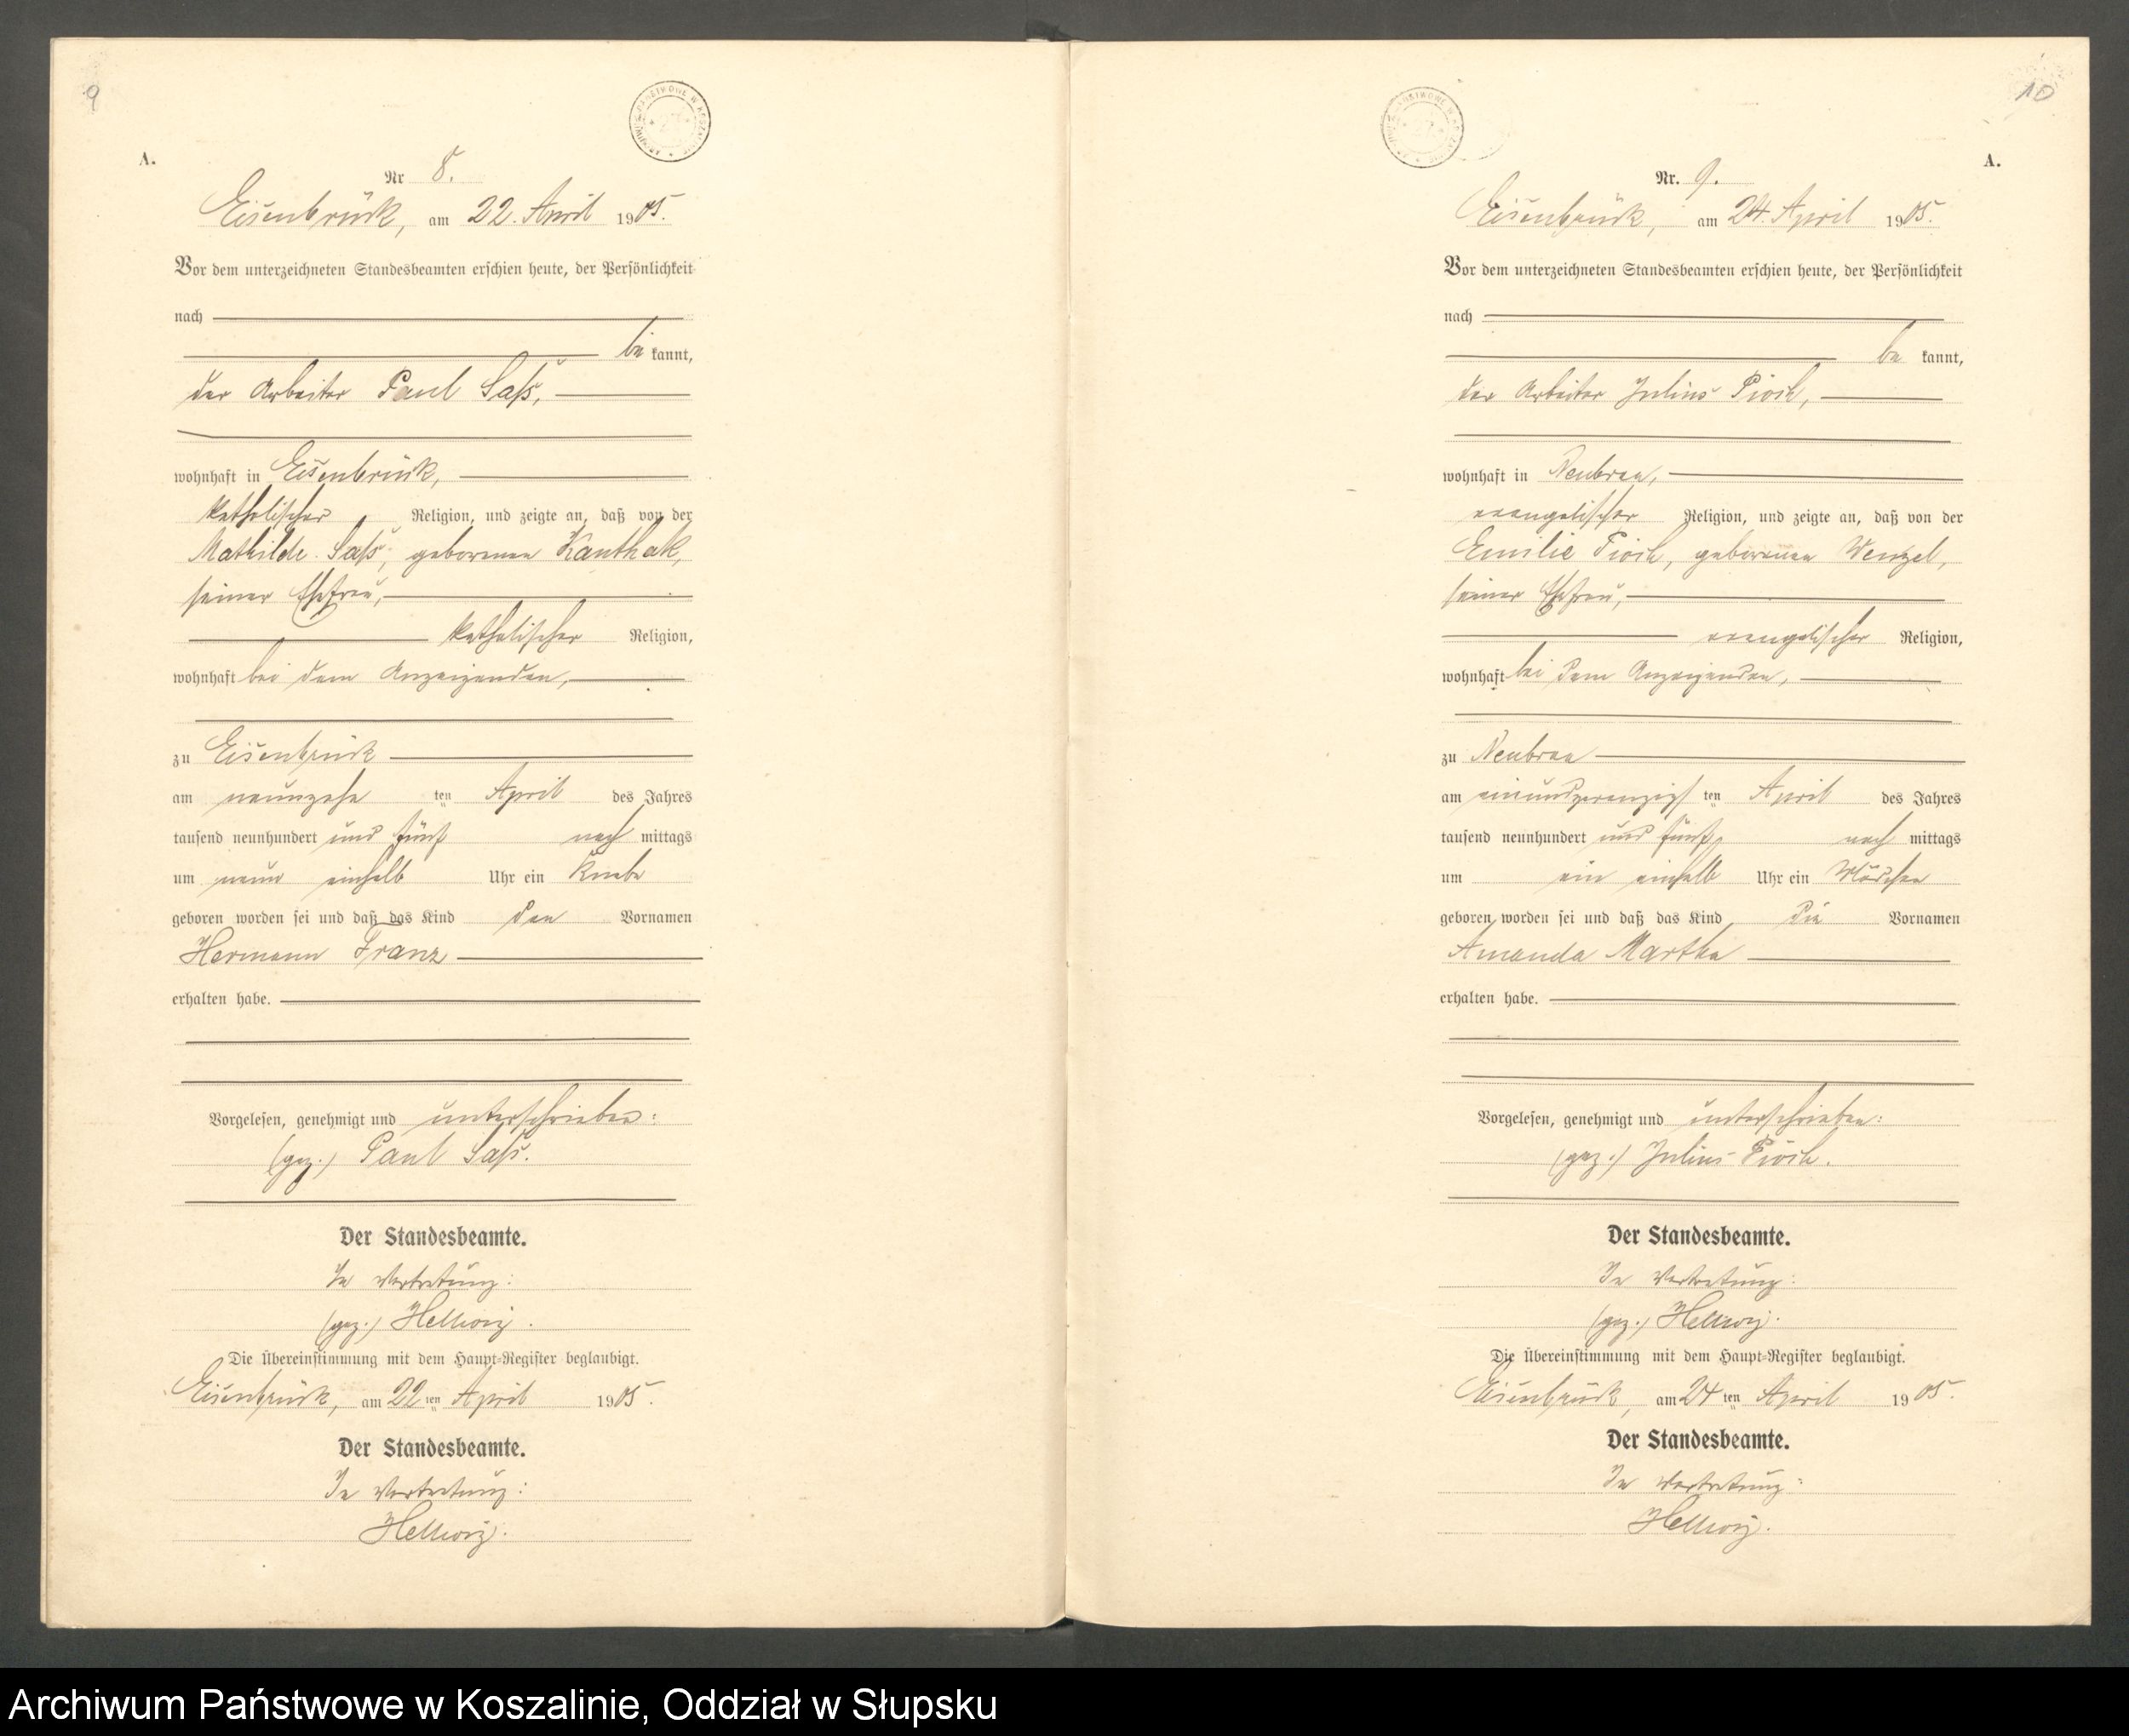 9
A.
Nr 8.
Eisenbrück, am 22. April 1905.
Vor dem unterzeichneten Standesbeamten erschien heute, der Persönlichkeit
nach
be kannt,
der Arbeiter Paul Saß,
wohnhaft in Eisenbrück,
katholischer Religion, und zeigte an, daß von der
Mathilde Saß, geborenen Kanthak,
seiner Ehefrau,
katholischer Religion,
wohnhaft bei dem Anzeigenden,
zu Eisenbrück
am neunzehn ten April des Jahres
tausend neunhundert und fünf nach mittags
um neun einhalb Uhr ein Knabe
geboren worden sei und daß das Kind den Vornamen
Hermann Franz
erhalten habe.
Vorgelesen, genehmigt und unterschrieben:
(gez.) Paul Saß.
Der Standesbeamte.
In Vertretung:
(gez.) Hellwig.
Die Übereinstimmung mit dem Haupt-Register beglaubigt.
Eisenbrück, am 22 ten April 1905.
Der Standesbeamte.
In Vertretung:
Hellwig.
10
A.
Nr. 9.
Eisenbrück, am 24. April 1905.
Vor dem unterzeichneten Standesbeamten erschien heute, der Persönlichkeit
nach
be kannt,
der Arbeiter Julius Pioch,
wohnhaft in Neubrau,
evangelischer Religion, und zeigte an, daß von der
Emilie Pioch, geborenen Wenzel,
seiner Ehefrau,
evangelischer Religion,
wohnhaft bei dem Anzeigenden,
zu Neubrau
am einundzwanzigs ten April des Jahres
tausend neunhundert und fünf nach mittags
um ein einhalb Uhr ein Mädchen
geboren worden sei und daß das Kind die Vornamen
Amanda Martha
erhalten habe.
Vorgelesen, genehmigt und unterschrieben:
(gez.) Julius Pioch.
Der Standesbeamte.
In Vertretung:
(gez.) Hellwig.
Die Übereinstimmung mit dem Haupt-Register beglaubigt.
Eisenbrück, am 24 ten April 1905.
Der Standesbeamte.
In Vertretung:
Hellwig.
Archiwum Państwowe w Koszalinie, Oddział w Słupsku